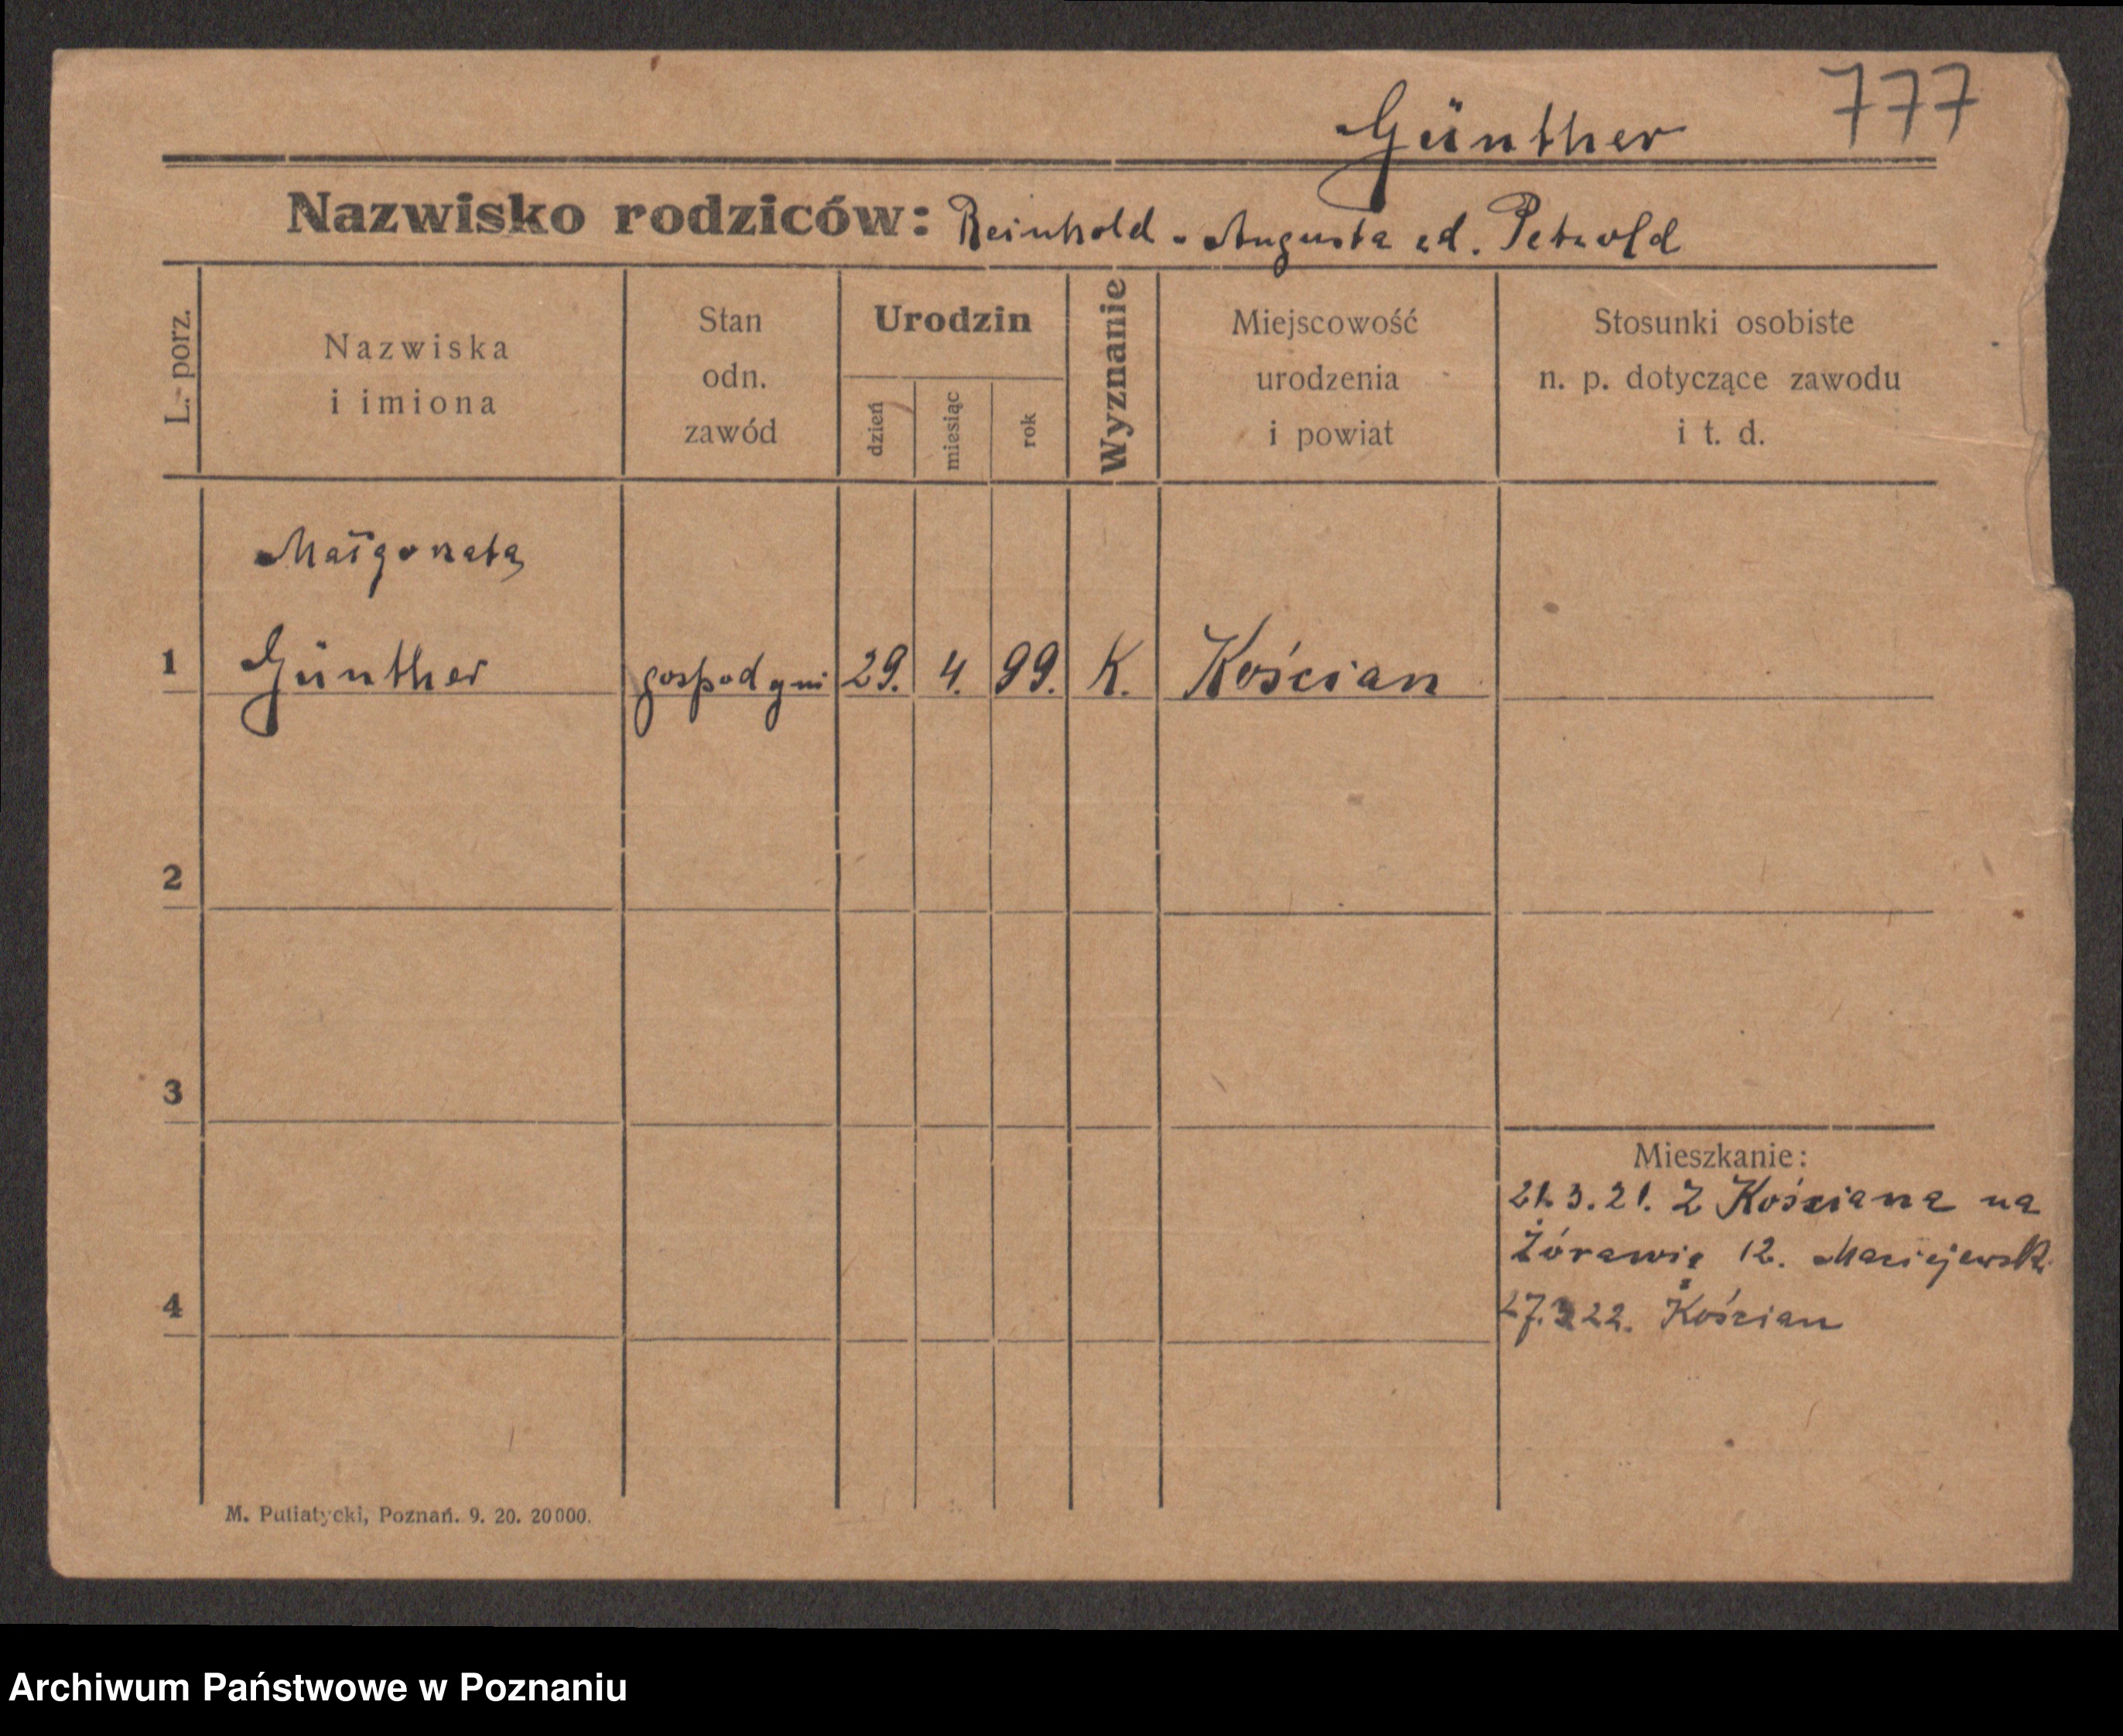 777
Günther
Nazwisko rodziców: Reinhold - Augusta zd. Petzold
L. porz.
Nazwiska
i imiona
Stan
odn.
zawód
Urodzin
dzień
miesiąc
rok
Wyznanie
Miejscowość
urodzenia
i powiat
Stosunki osobiste
n. p. dotyczące zawodu
i t. d.
Małgorzata
1 Günther gospodyni 29. 4. 99. K. Kościan
2
3
Mieszkanie:
21.3.21. Z Kościana na
Żórawią 12. Maciejewski
4
27.3.22. Kościan
M. Putiatycki, Poznań. 9. 20. 20000.
Archiwum Państwowe w Poznaniu